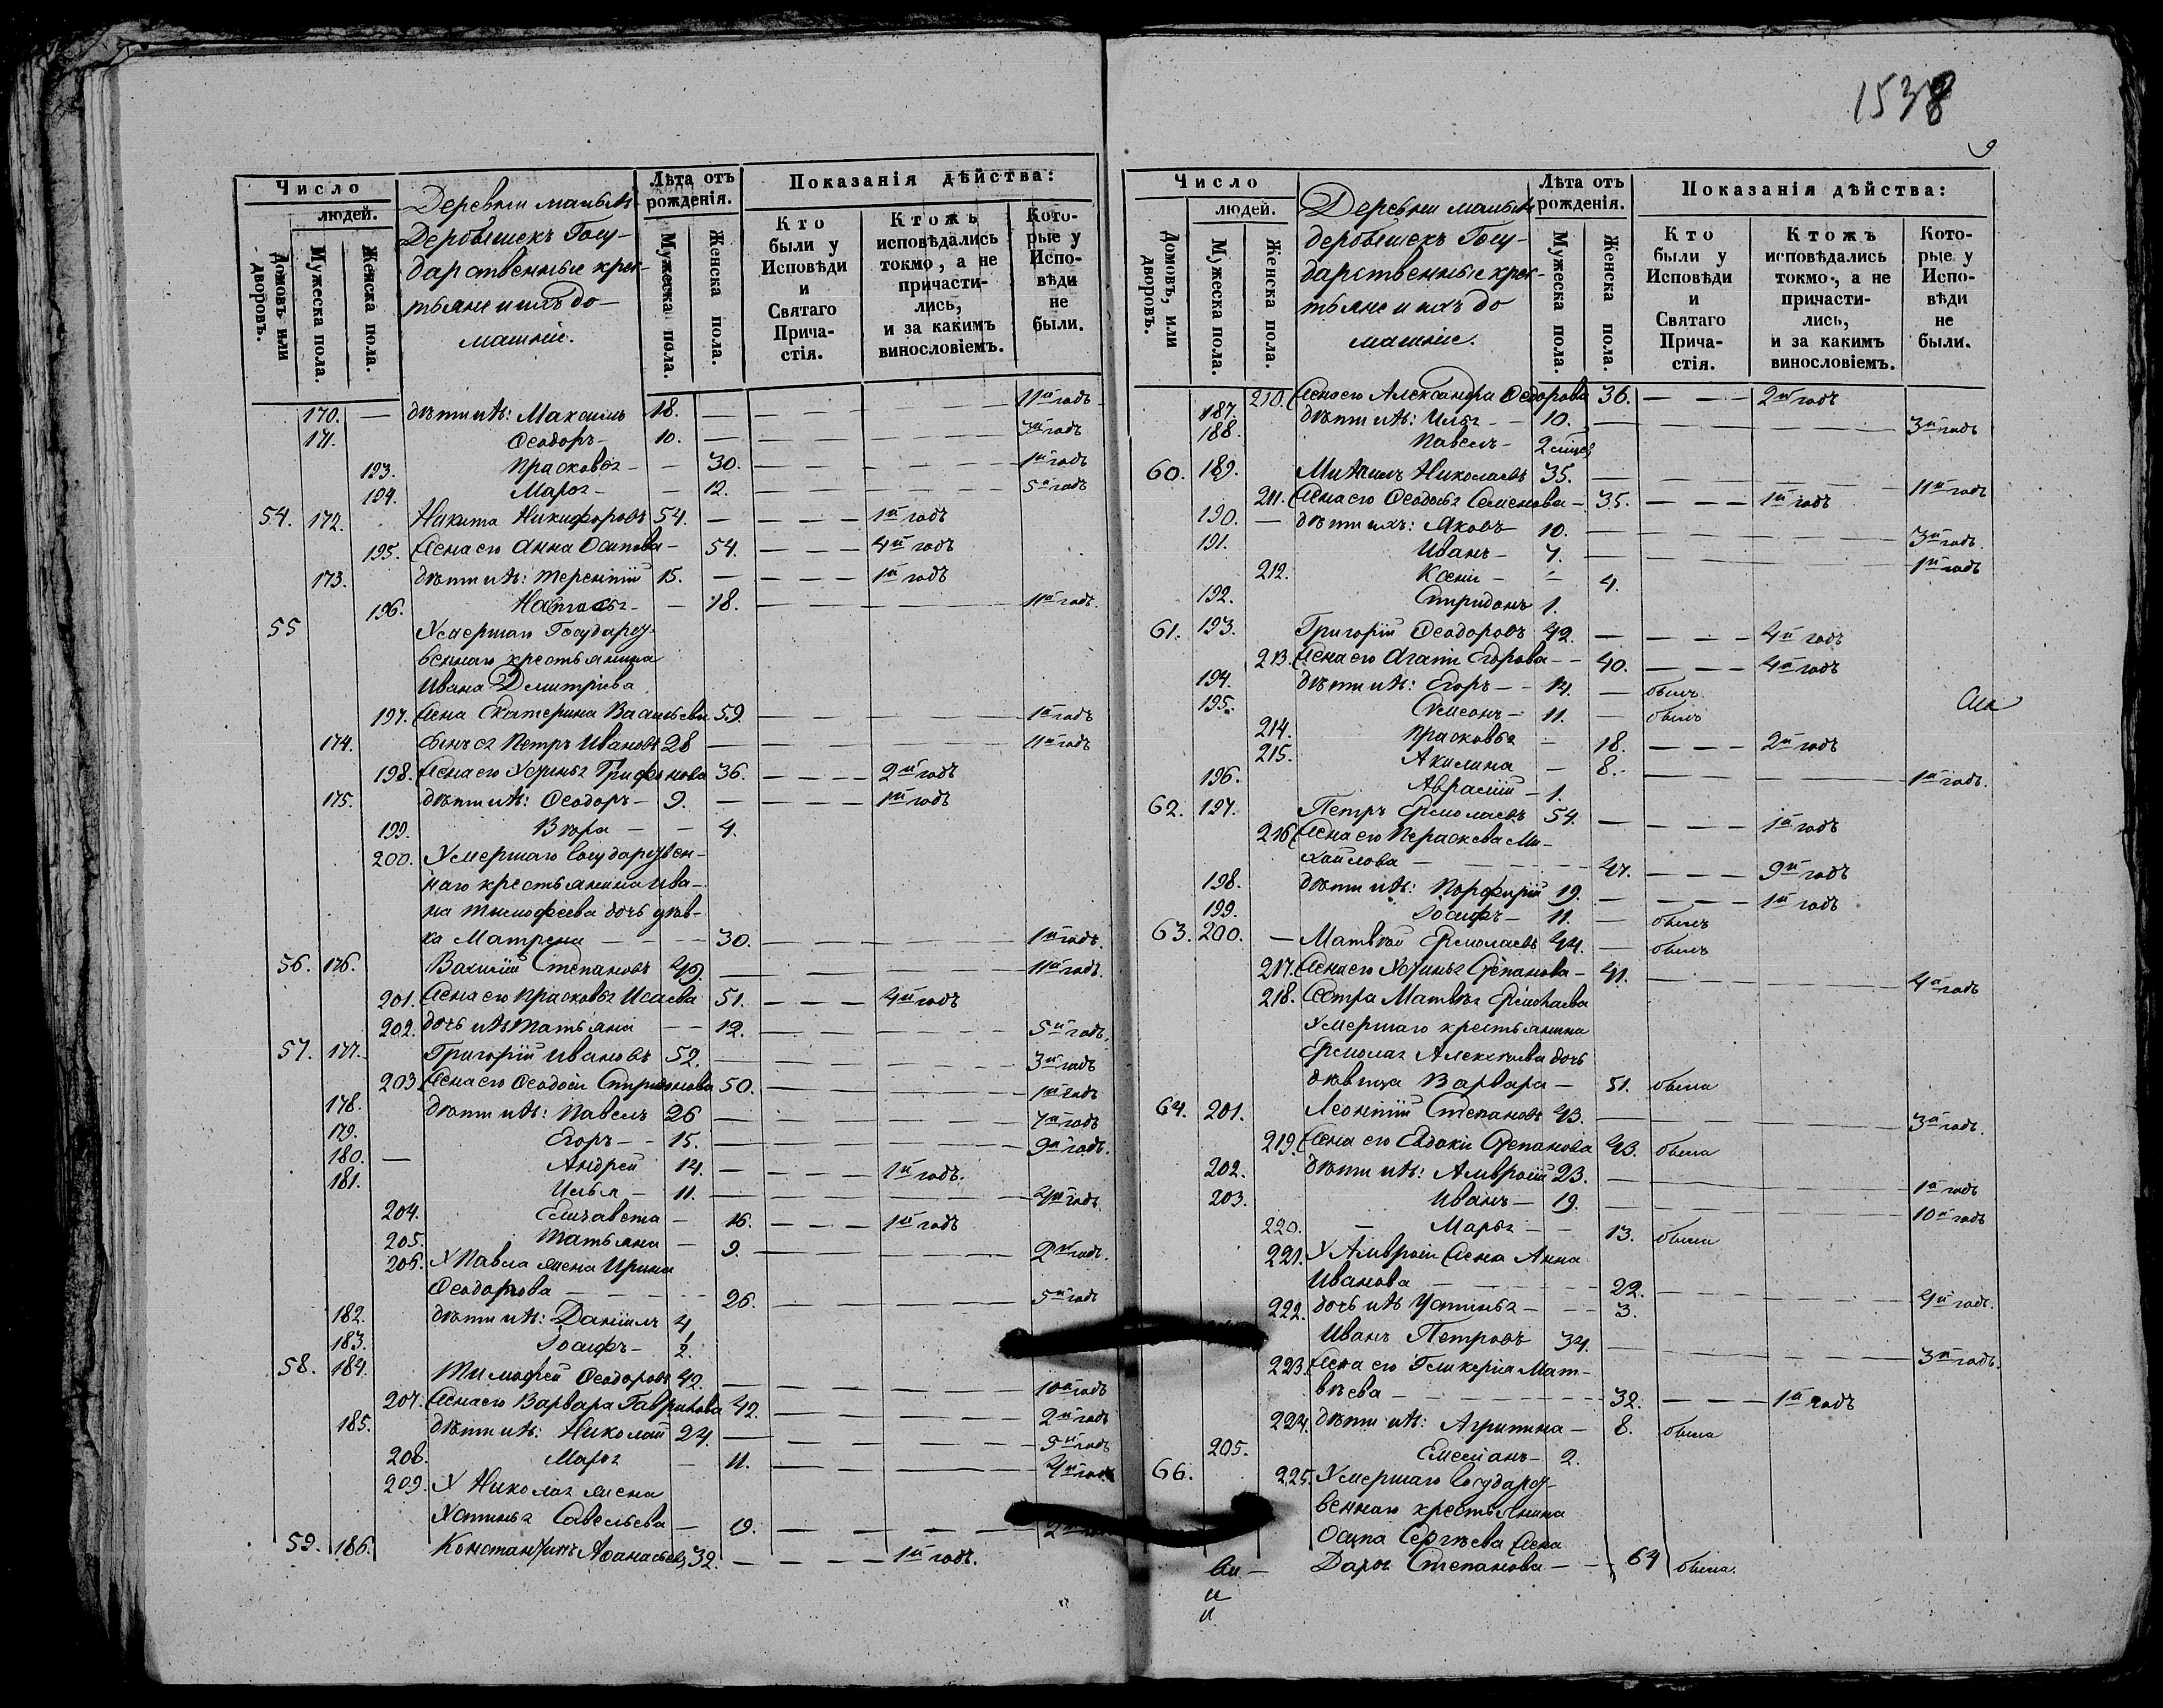 1538
9
Число
людей.
Домовъ или дворовъ.
Мужеска пола.
Женска пола.
Деревни малыхъ
Дербышекъ Госу-
дарственные крес-
тьяне и ихъ до-
машніе.
Лѣта отъ рожденія.
Мужеска пола.
Женска пола.
Показанія дѣйства:
Кто были у Исповѣди и Святаго Прича-стія.
Ктожъ исповѣдались токмо, а не причасти-лись, и за какимъ винословіемъ.
Кото-рые у Испо-вѣди не были.
170. — дѣти ихъ: Максимъ 18. — 11й годъ
171. Ѳеодоръ 10. — 3й годъ
193. Прасковья — 30. — 1й годъ
194. Марья — 12. — 5й годъ
54. 172. Никита Никифоровъ 54. — 1й годъ
195. Жена его Анна Осипова — 54. — 4й годъ
173. дѣти ихъ: Терентій 15. — 1й годъ
196. Настасья — 18. — 11й годъ.
55 Умершаго Государст-
веннаго крестьянина
Ивана Димитріева
197. Жена Екатерина Васильева 59. — 1й годъ
174. сынъ ея Петръ Ивановъ 28 — 11й годъ
198. Жена его Устинья Трифонова 36. — 2й годъ
175. дѣти ихъ: Ѳеодоръ — 9. — 1й годъ
199. Вѣра — 4.
200. Умершаго Государствен-
наго крестьянина Ива-
на Тимофеева дочь дѣв-
ка Матрена — 30. — 1й годъ.
56. 176. Василій Степановъ 49. — 11й годъ.
201. Жена его Прасковья Исаева 51. — 4й годъ
202. дочь ихъ Татьяна — 12. — 5й годъ.
57. 177. Григорій Ивановъ 52. — 3й годъ
203. Жена его Ѳеодосія Спиридонова 50. — 1й годъ
178. дѣти ихъ: Павелъ 26 — 7й годъ
179. Егоръ — 15. — 9й годъ.
180. — Андрей 14. — 1й годъ.
181. Илья — 11. — 4й годъ
204. Елизавета — 16. — 1й годъ
205. Татьяна — 9. — 2й годъ.
206. У Павла жена Ирина
Ѳеодорова — 26. — 5й годъ
182. дѣти ихъ: Даніилъ 4
183. Іосифъ — ½.
58. 184. Тимофей Ѳеодоровъ 42. — 10й годъ
207. Жена его Варвара Гаврилова 42. — 2й годъ
185. дѣти ихъ: Николай 24. — 5й годъ
208. Марья — 11. — 4й годъ
209. У Николая жена
Устинья Савельева — 19. — 2й
59. 186. Константинъ Аѳанасьевъ 32. — 1й годъ.
Число
людей.
Домовъ, или дворовъ.
Мужеска пола.
Женска пола.
Деревни малыхъ
дербышекъ Госу-
дарственные крес-
тьяне и ихъ до
машніе.
Лѣта отъ рожденія.
Мужеска пола.
Женска пола.
Показанія дѣйства:
Кто были у Исповѣди и Святаго Прича-стія.
Ктожъ исповѣдались токмо, а не причасти-лись, и за какимъ винословіемъ.
Кото-рые у Испо-вѣди не были.
210. Жена его Александра Ѳедорова 36. — 2й годъ
187. дѣти ихъ: Илья — 10. — 3й годъ
188. Павелъ — 2
60. 189. Михаилъ Николаевъ 35. — 11й годъ
211. Жена его Ѳеодосья Семенова — 35. — 1й годъ
190. — дѣти ихъ: Яковъ 10. — 3й годъ.
191. Иванъ — 7. — 1й годъ
212. Ксенія — 4.
192. Спиридонъ 1.
61. 193. Григорій Ѳеодоровъ 42. — 4й годъ
213. Жена его Агафія Егорова — 40. — 4й годъ
194. дѣти ихъ: Егоръ — 14. — былъ
195. Симеонъ — 11. — былъ
214. Прасковья — 18. — 2й годъ
215. Акилина — 8. — 1й годъ.
196. Аврамій — 1.
62. 197. Петръ Ермолаевъ 54. — 1й годъ
216. Жена его Параскева Ми-
хайлова — 47. — 9й годъ
198. дѣти ихъ: Порфирій 19. — 1й годъ
199. Іосифъ — 11. — былъ
63. 200. — Матвѣй Ермолаевъ 44. — былъ
217. Жена его Устинья Степанова — 41. — 4й годъ
218. Сестра Матвѣя Ермолаева
Умершаго крестьянина
Ермолая Алексѣева дочь
дѣвица Варвара — 51. была
64. 201. Леонтій Степановъ 43. — 3й годъ.
219. Жена его Евдокія Степанова 43. была
202. дѣти ихъ: Амвросій 23. — 1й годъ
203. Иванъ — 19. — 10й годъ
220. — Марья — 13. была
221. У Амвросія жена Анна
Иванова — 22. — 4й годъ.
222. дочь ихъ Устинья — 3.
Иванъ Петровъ 34. — 3й годъ.
223. Жена его Гликерія Мат-
вѣева — 32. — 1й годъ
224. дѣти ихъ: Агрипина — 8. была
205. Емеліанъ — 2.
66. 225. Умершаго Государст-
веннаго крестьянина
Осипа Сергѣева Жена
Дарья Степанова — 64 была.